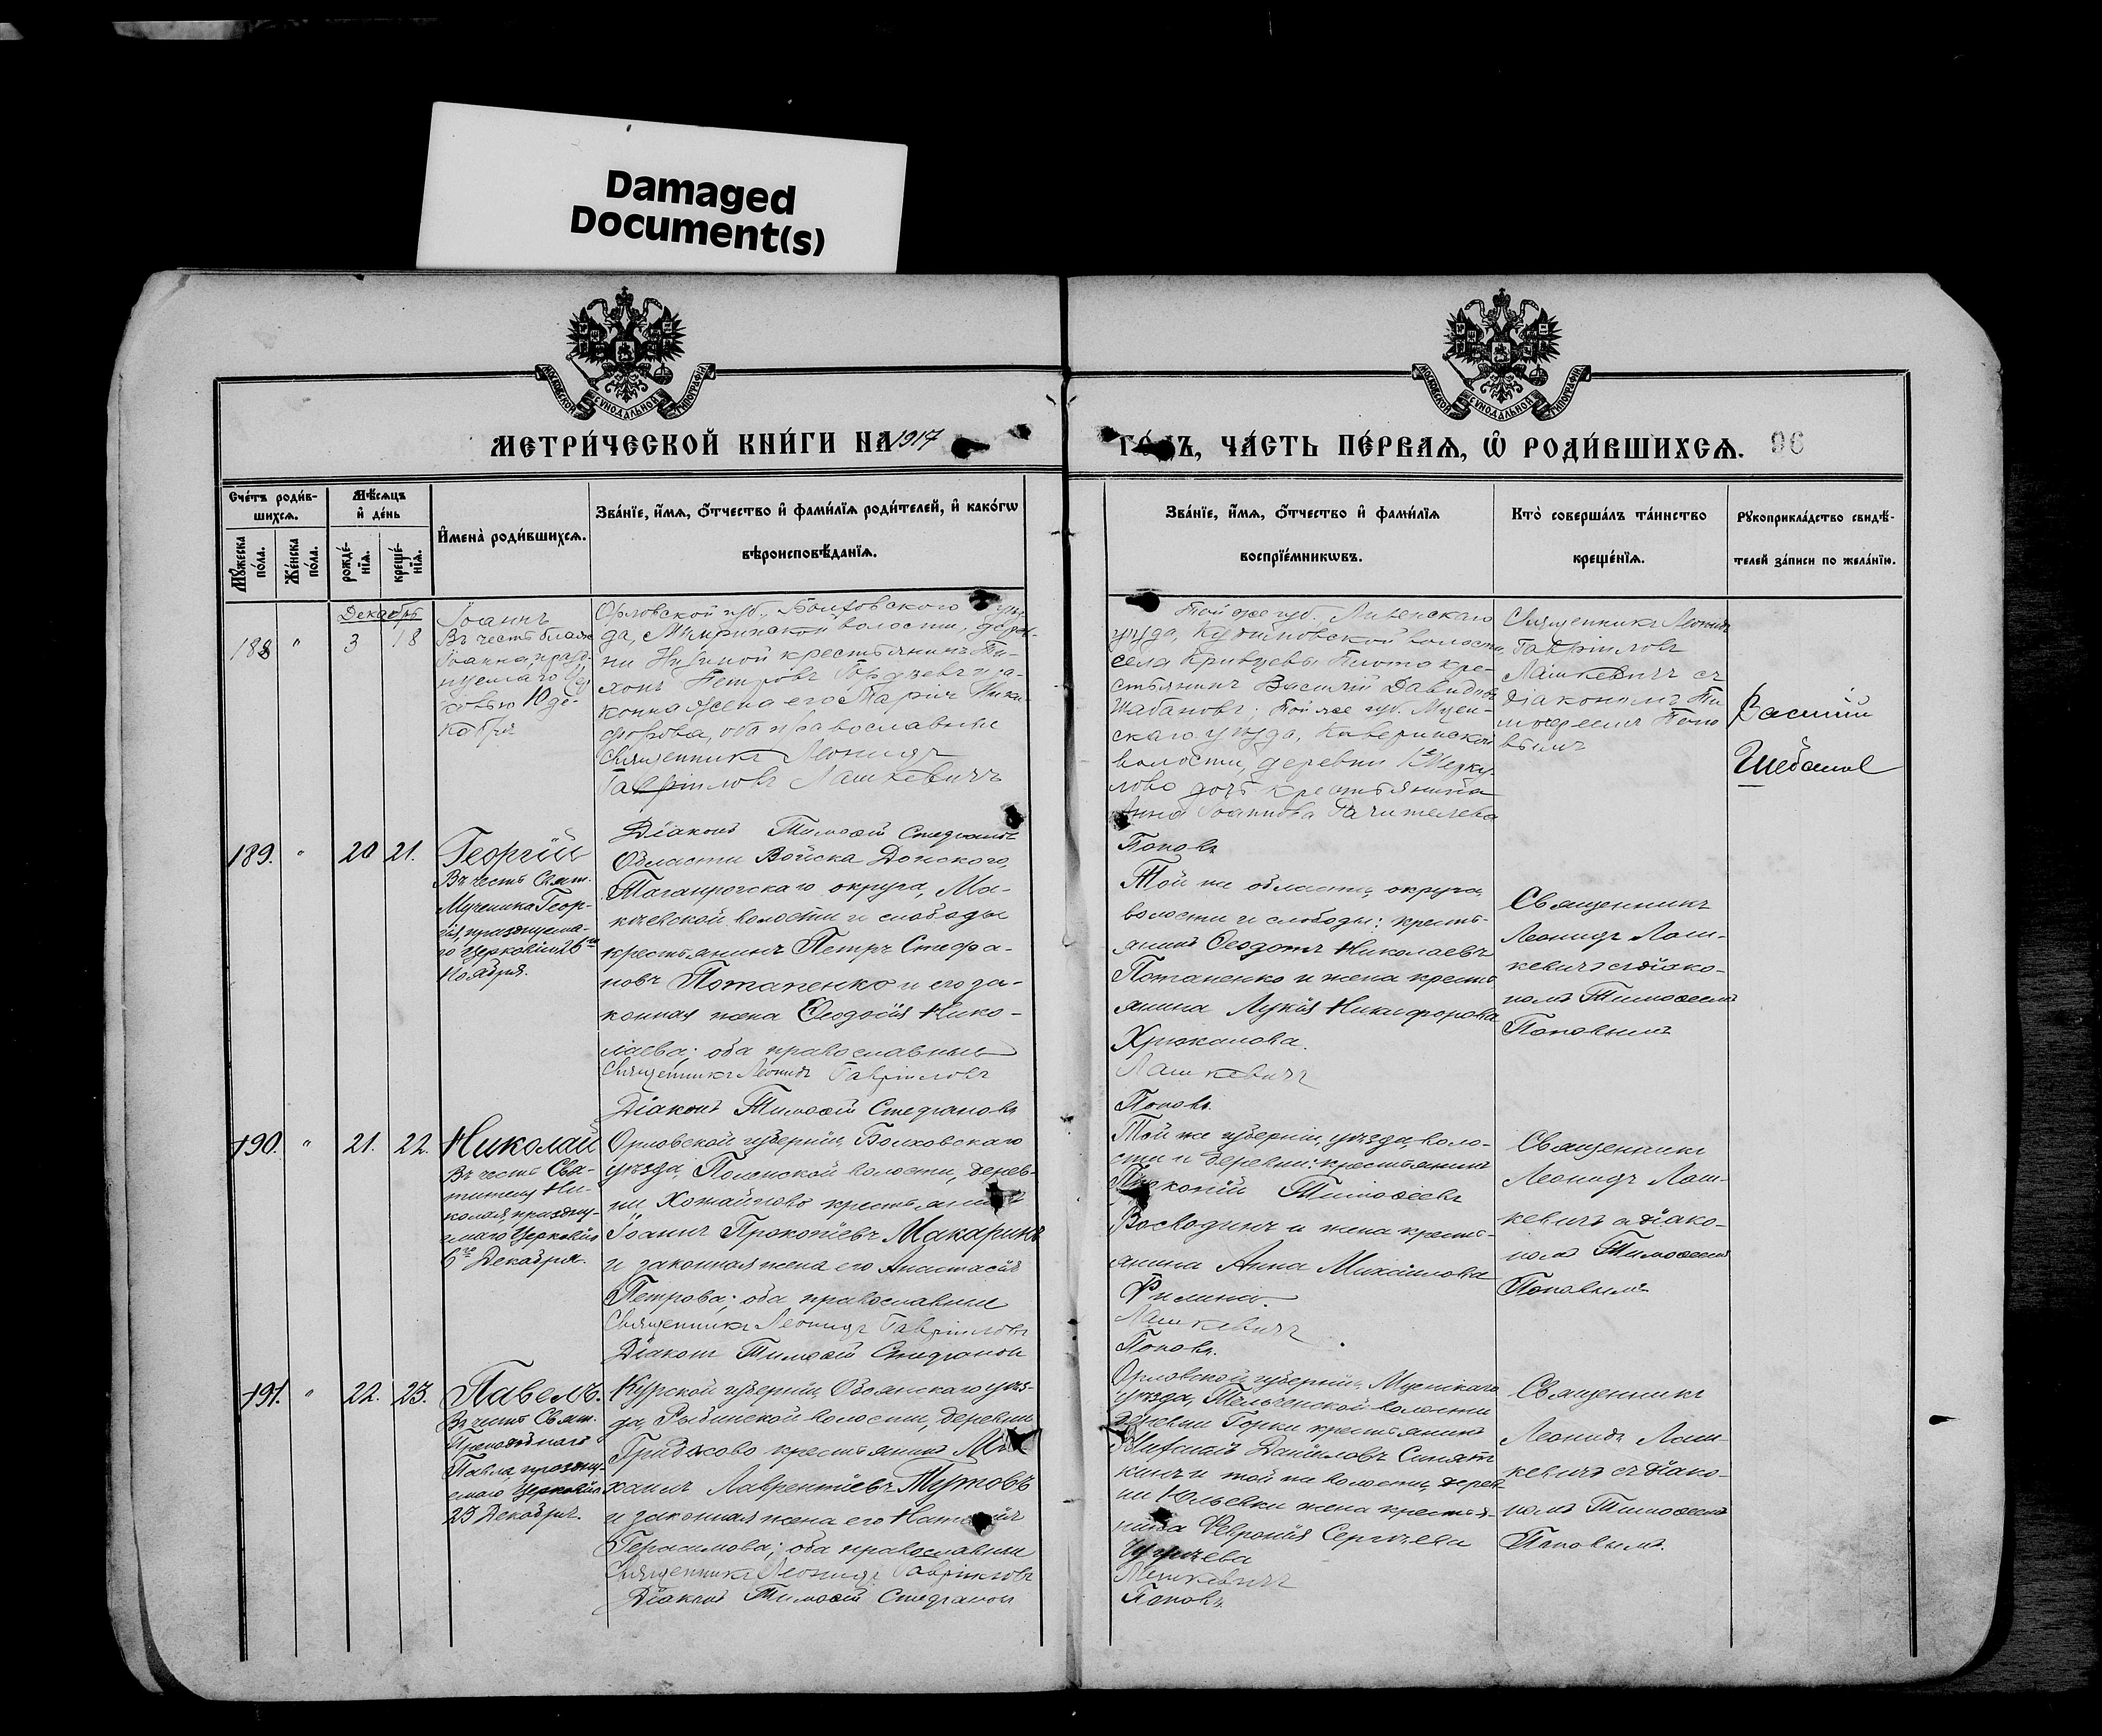 Damaged
Document(s)
МОСКОВСКОЙ СѴНОДАЛЬНОЙ ТИПОГРАФІИ
МОСКОВСКОЙ СѴНОДАЛЬНОЙ ТИПОГРАФІИ
МЕТРИ́ЧЕСКОЙ КНИ́ГИ НА 1917
ГО́ДЪ, ЧА́СТЬ ПЕ́РВАѦ, Ѡ҆ РОДИ́ВШИХСѦ. 96
Сче́тъ роди́в-
шихсѧ.
Мꙋ́жеска по́ла.
Же́нска по́ла.
Мѣ́сѧцъ
и҆ де́нь
рожде́-
нїѧ.
креще́-
нїѧ.
И҆мена̀ роди́вшихсѧ.
Зва́нїе, и҆́мѧ, ѻ҆́тчество и҆ фами́лїѧ роди́телей, и҆ како́гѡ
вѣроисповѣ́данїѧ.
Зва́нїе, и҆́мѧ, ѻ҆́тчество и҆ фами́лїѧ
воспрїе́мникѡвъ.
Кто̀ соверша́лъ та́инство
креще́нїѧ.
Рꙋкоприкла́дство свидѣ́-
телей за́писи по жела́нїю.
Декабрь
188 " 3 18
Іоаннъ
Въ честь
Іоанна, празд-
10 де-
кабря
Орловской губ., Болховского
да, волости, дерев-
ни крестьянинъ Ти-
хонъ Петровъ и за-
конная жена его Марія Ники-
форова, оба православные
Священникъ Леонидъ
Гавріиловъ Лашкевичъ
Діаконъ Тимоѳей Стефановъ
Той же губ. Ливенскаго
уѣзда, волости,
села кре-
стьянинъ Василій Давидовъ
Шабановъ; Той же губ. Мцен-
скаго уѣзда,
волости, деревни
дочь крестьянина
Анна Іоаннова
Поповъ
Священникъ Леонидъ
Гавріиловъ
Лашкевичъ съ
діакономъ Ти-
моѳеемъ Попо-
вымъ
Василий
189. " 20 21.
Георгій
Въ честь Свят.
Мученика Геор-
гія, празднуема-
го Церковію 26го
Ноября.
Области Войска Донского,
Таганрогскаго округа, Ма-
кѣевской волости и слободы
крестьянинъ Петръ Стефа-
новъ Потапенко и его за-
конная жена Ѳеодосія Нико-
лаева; оба православные
Священникъ Леонидъ Гавріиловъ
Діаконъ Тимоѳей Стефановъ
Той же области, округа,
волости и слободы: кресть-
янинъ Ѳеодотъ Николаевъ
Потапенко и жена кресть-
янина Лукія Никифорова
Хрюкалова.
Лашкевичъ
Поповъ.
Священникъ
Леонидъ Лаш-
кевичъ съ діако-
номъ Тимоѳеемъ
Поповымъ
190. " 21. 22.
Николай
Въ честь Свя-
тителя Ни-
колая, праздну-
емаго Церковію
6го Декабря.
Орловской губерніи, Болховскаго
уѣзда, волости, дерев-
ни крестьянинъ
Іоаннъ Прокопіевъ Макаринъ
и законная жена его Анастасія
Петрова; оба православные
Священникъ Леонидъ Гавріиловъ
Діаконъ Тимоѳей Стефановъ
Той же губерніи, уѣзда, воло-
сти и деревни: крестьянинъ
Прокопій Тимоѳеевъ
и жена кресть-
янина Анна Михаилова
Филина.
Лашкевичъ
Поповъ.
Священникъ
Леонидъ Лаш-
кевичъ съ діако-
номъ Тимоѳеемъ
Поповымъ
191. " 22. 23.
Павелъ.
Въ честь Свят.
Преподобнаго
Павла, праздну-
емаго Церковію
23 Декабря.
Курской губерніи, Обоянскаго уѣз-
да, Рыбинской волости, деревни
Гридасово крестьянинъ Ми-
хаилъ Лаврентіевъ Мутовъ
и законная жена его Наталія
Герасимова; оба православные
Священникъ Леонидъ Гавріиловъ
Діаконъ Тимоѳей Стефановъ
Орловской губерніи, Мценскаго
уѣзда, Тельченской волости
деревни Горки крестьянинъ
Даніиловъ
и той же волости, дерев-
ни Юльевки жена крестья-
нина Февронія Сергѣева
Лашкевичъ
Поповъ.
Священникъ
Леонидъ Лаш-
кевичъ съ діако-
номъ Тимоѳеемъ
Поповымъ.